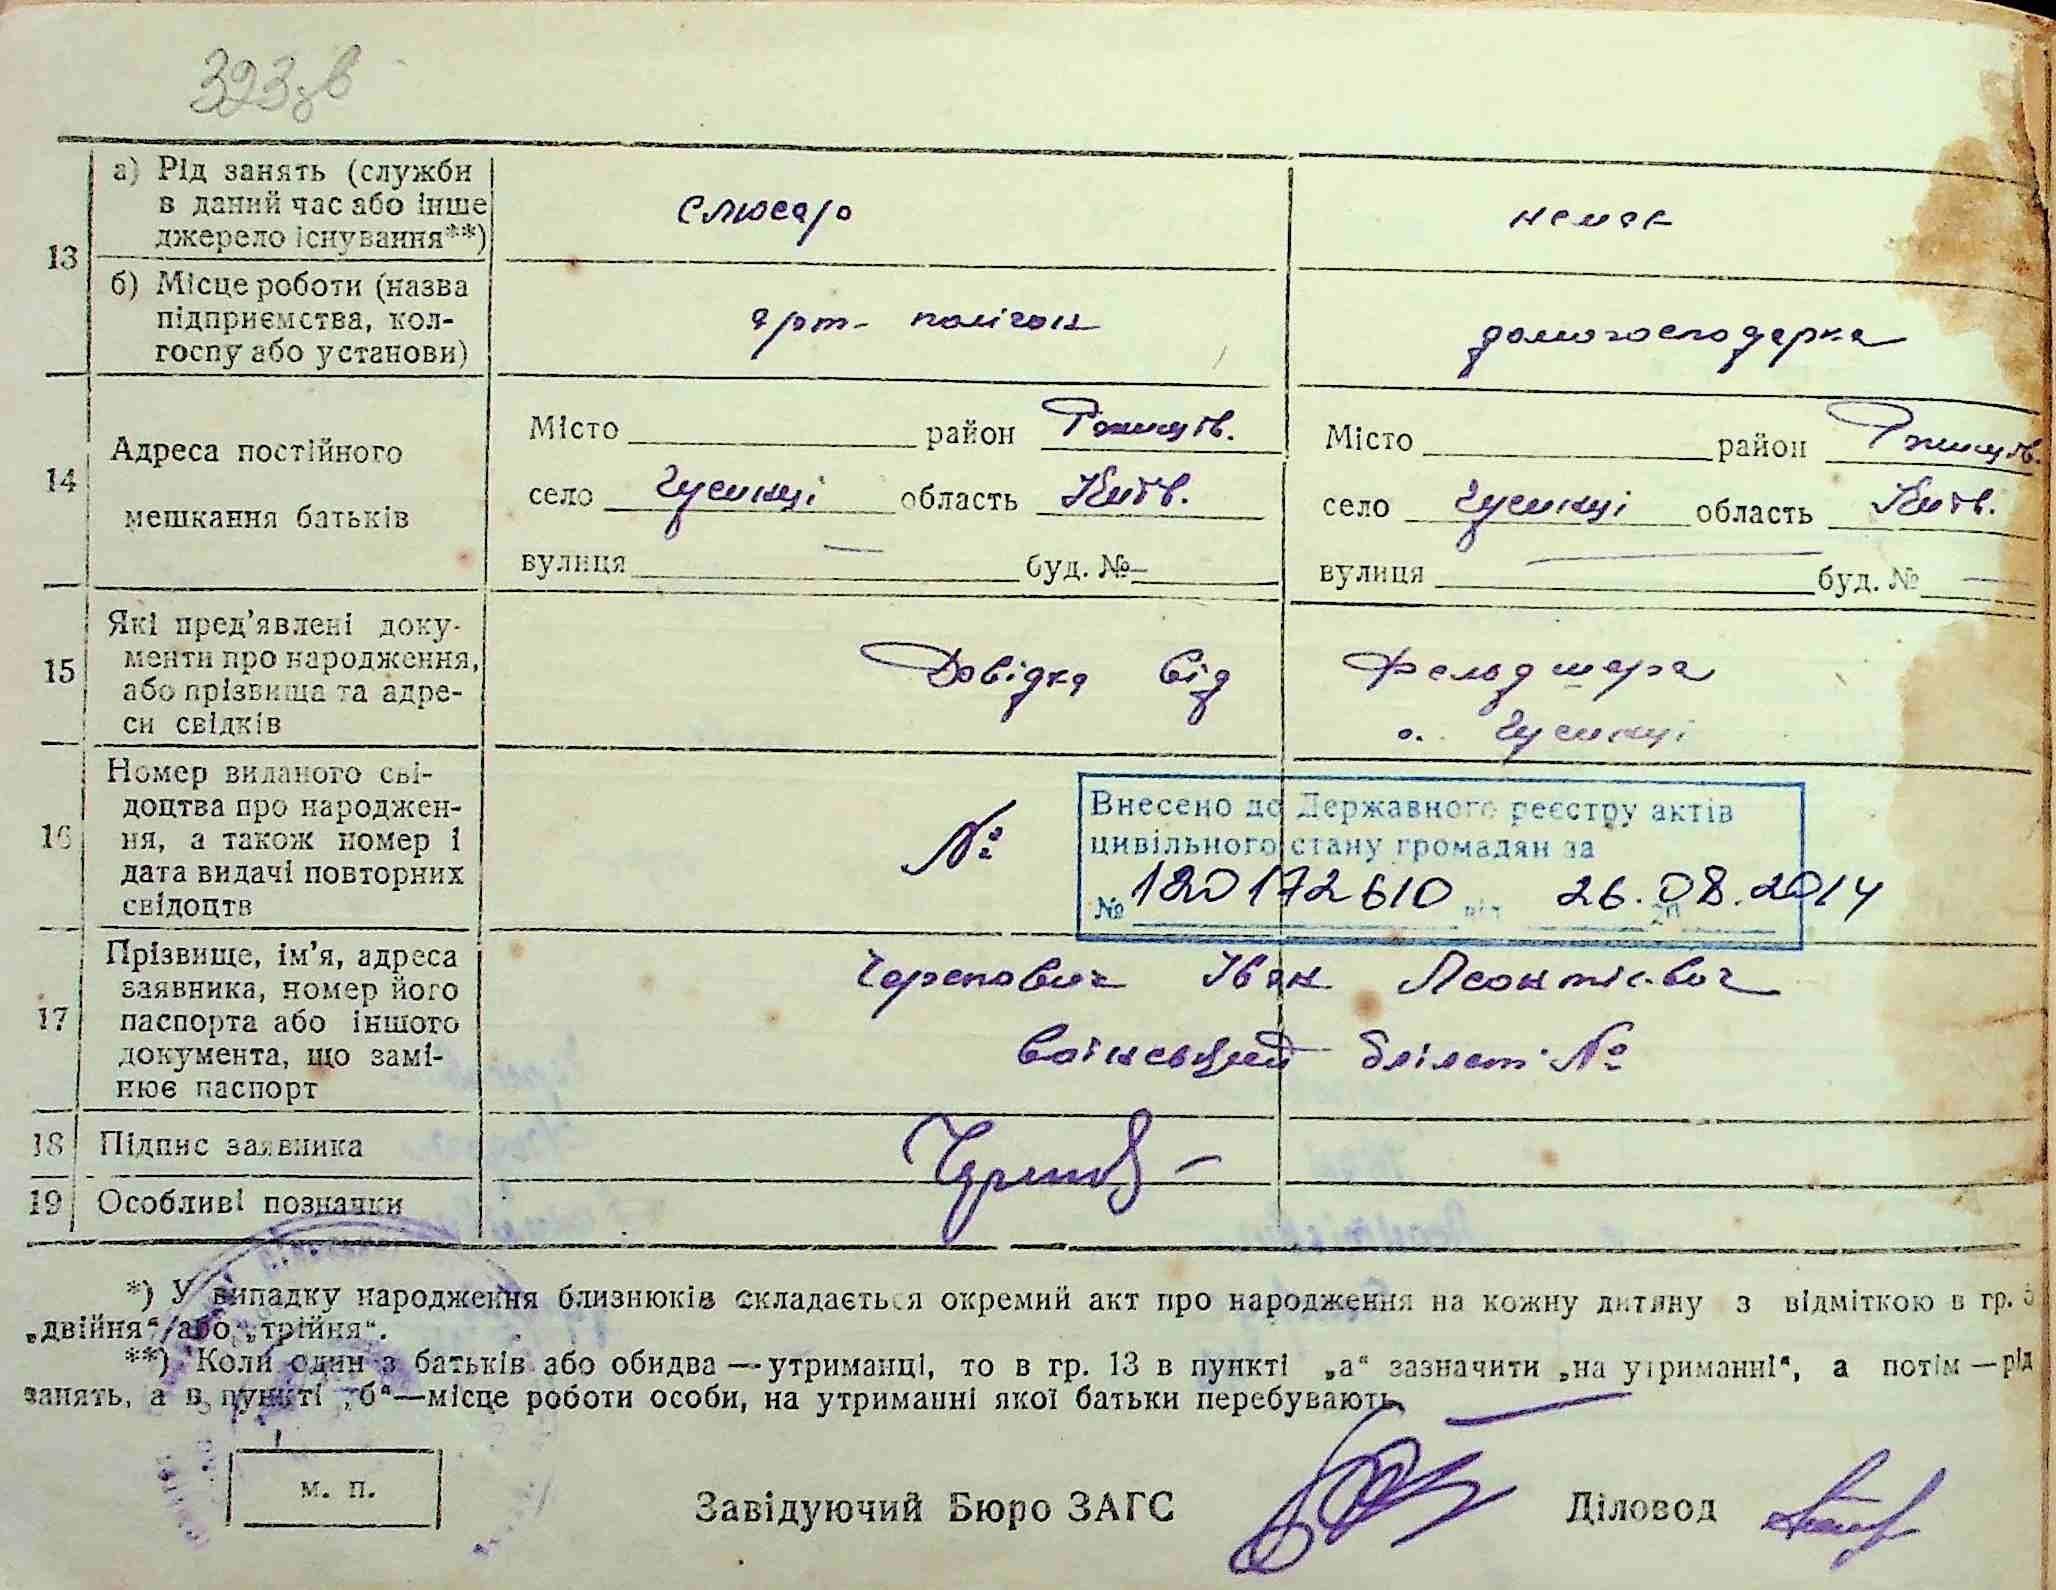 323 зв
13
а) Рід занять (служби
в даний час або інше
джерело існування**)
слюсарь
немає
б) Місце роботи (назва
підприємства, кол-
госпу або установи)
арт- полігон
домогосподарка
14
Адреса постійного
мешкання батьків
Місто район
село Гусинці область Київ.
вулиця — буд. № —
Місто район
село Гусинці область Київ.
вулиця — буд. № —
15
Які пред'явлені доку-
менти про народження,
або прізвища та адре-
си свідків
Довідка від фельдшера
с. Гусинці
16
Номер виданого сві-
доцтва про народжен-
ня, а також номер і
дата видачі повторних
свідоцтв
№
Внесено до Державного реєстру актів
цивільного стану громадян за
№ 120172610 від 26.08.2014
17
Прізвище, ім'я, адреса
заявника, номер його
паспорта або іншого
документа, що замі-
нює паспорт
Черепович Іван Леонтієвич
воінський білет №
18 Підпис заявника
19 Особливі позначки
*) У випадку народження близнюків складається окремий акт про народження на кожну дитину з відміткою в гр.
„двійня“ або „трійня“.
**) Коли один з батьків або обидва — утриманці, то в гр. 13 в пункті „а“ зазначити „на утриманні“, а потім — рід
занять, а в пункті „б“—місце роботи особи, на утриманні якої батьки перебувають.
м. п.
Завідуючий Бюро ЗАГС
Діловод